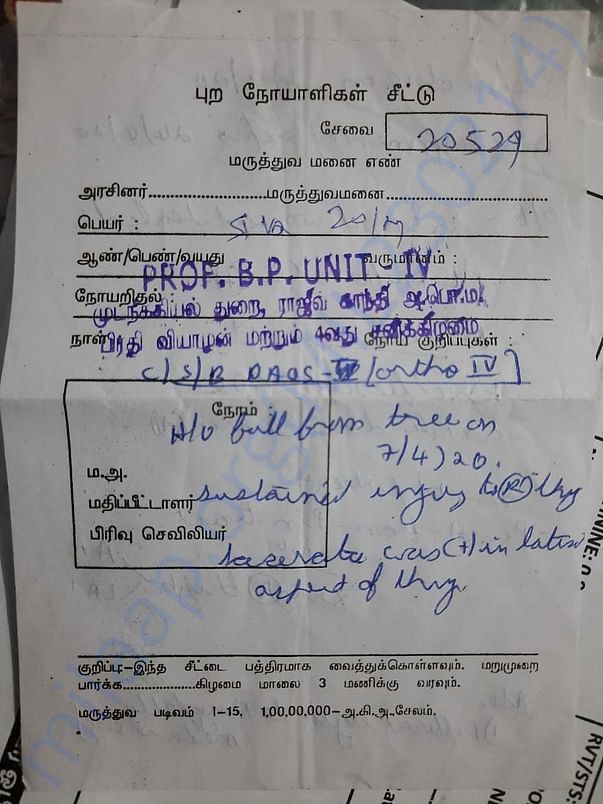 புற நோயாளிகள் சீட்டு
சேவை 20529
மருத்துவ மனை எண்
அரசினர்....................மருத்துவமனை............................
பெயர் : Siva 20/M
ஆண்/பெண்/வயது வருமானம் :
PROF. B.P. UNIT - IV
நோயறிதல் :
முடநீக்கியல் துறை, ராஜீவ் காந்தி அ.பொ.ம.
நாள் நோய் குறிப்புகள் :
பிரதி வியாழன் மற்றும் 4வது சனிக்கிழமை
C/S/B DAOS- [ortho IV]
நேரம் :
H/O fall from tree on
7/4/20.
ம.அ.
மதிப்பீட்டாளர் sustained injury to (R) thigh
பிரிவு செவிலியர்
(+) in lateral
aspect of thigh
குறிப்பு:–இந்த சீட்டை பத்திரமாக வைத்துக்கொள்ளவும். மறுமுறை
பார்க்க....................கிழமை மாலை 3 மணிக்கு வரவும்.
மருத்துவ படிவம் I–15, 1,00,00,000–அ.கி.அ.சேலம்.
RVT/STS